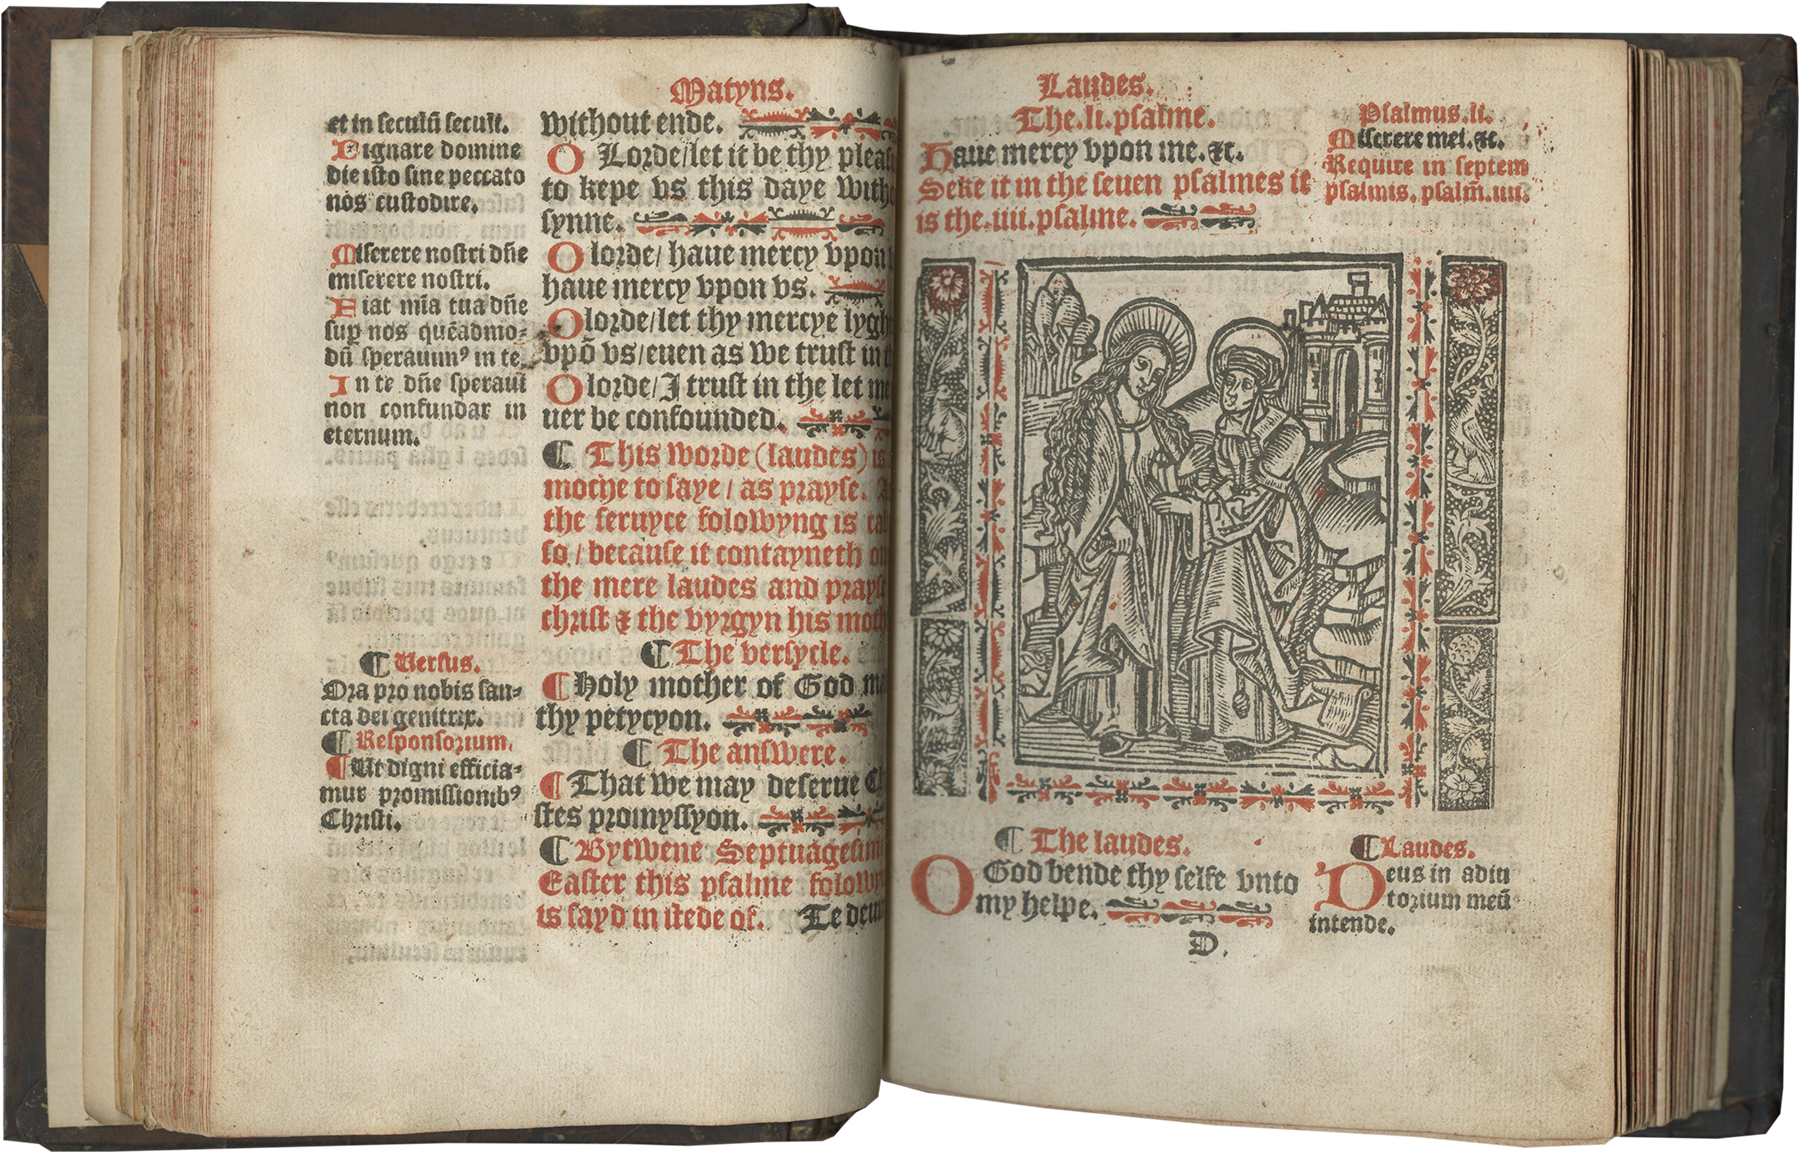 Matyns.
et in seculū seculi.
Dignare domine
die isto sine peccato
nos custodire.
Miserere nostri dn̄e
miserere nostri.
Fiat mīa tua dn̄e
sup nos quēadmo=
dū sperauimꝰ in te.
In te dn̄e speraui
non confundar in
eternum.
¶ Versus.
Ora pro nobis san=
cta dei genitrix.
¶ Responsorium.
¶ Ut digni efficia=
mur promissionibꝰ
Christi.
without ende.
O Lorde/let it be thy
to kepe vs this daye
synne.
O lorde/ haue mercy vpon
haue mercy vpon vs.
O lorde/let thy mercye
vpō vs/euen as we trust in
O lorde/I trust in the let
uer be confounded.
¶ This worde (laudes) is
moche to saye/ as prayse.
the seruyce folowyng is
so/ because it contayneth
the mere laudes and
christ & the vyrgyn his
¶ The versycle.
¶ Holy mother of God
thy petycyon.
¶ The answere.
¶ That we may deserue
stes promyssyon.
¶ Bytwene
Easter this psalme
is sayd in stede of. Te
Laudes.
The .li. psalme.
Haue mercy vpon me. &c.
Seke it in the seuen psalmes it
is the .iiii. psalme.
Psalmus .li.
Miserere mei. &c.
Require in septem
psalmis. psalm̄. iiii.
¶ The laudes.
O God bende thy selfe vnto
my helpe.
¶ Laudes.
Deus in adiu
torium meū
intende.
D.